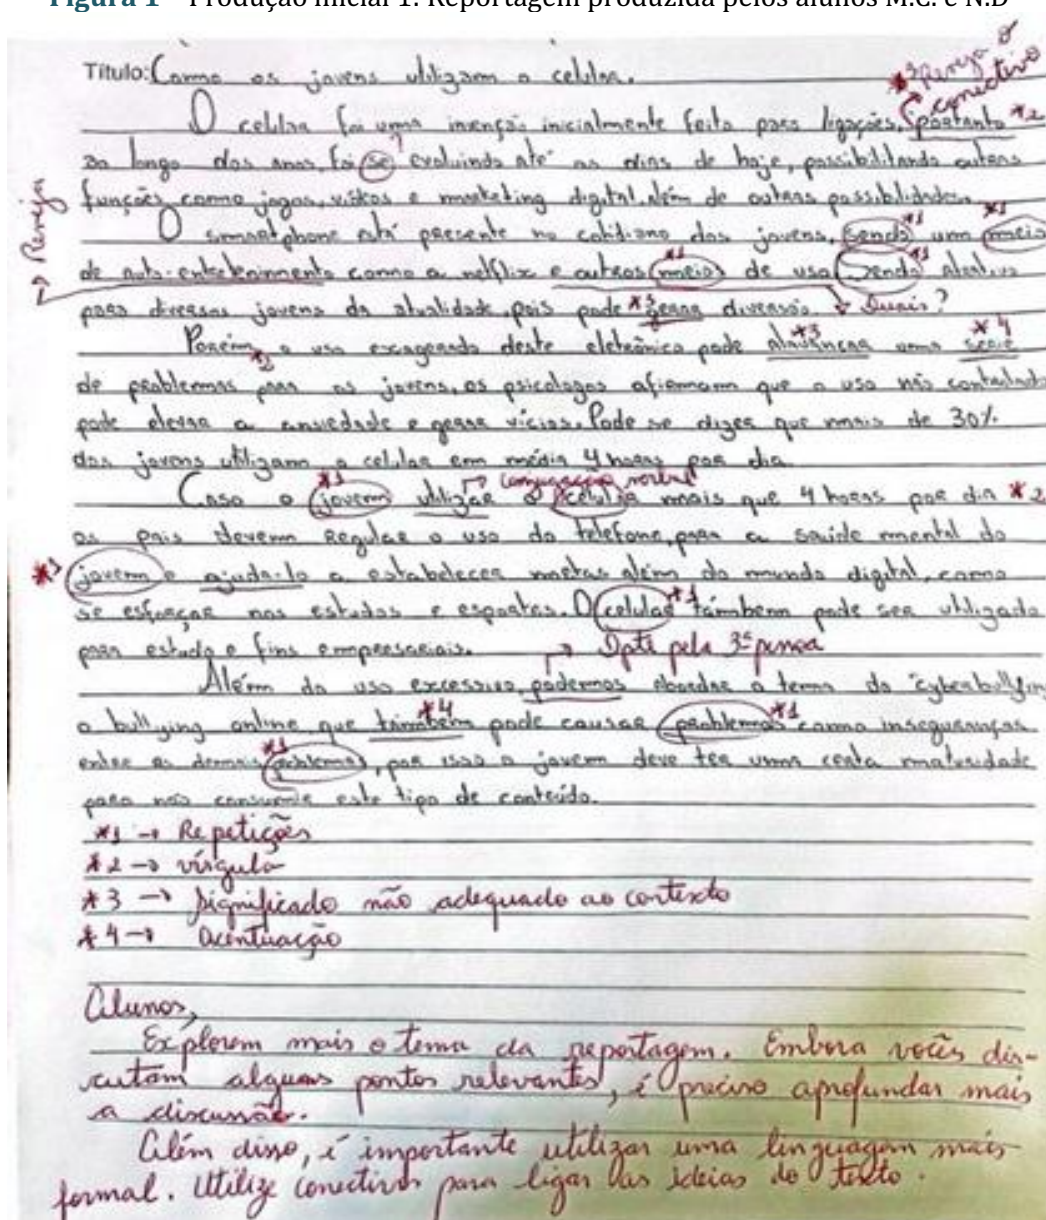 Figura 1 – Produção inicial 1: Reportagem produzida pelos alunos M.C. e N.D
Título: Como os jovens utilizam o celular.
*3 Reveja o
conectivo
O celular foi uma invenção inicialmente feita para ligações, portanto *2
ao longo dos anos, foi se evoluindo até os dias de hoje, possibilitando outras
→ Reveja
funções como jogos, vídeos e marketing digital, além de outras possibilidades.
O smartphone está presente no cotidiano dos jovens, sendo *1 um meio *1
de auto-entretenimento como a netflix e outros meios *1 de uso sendo *1 atrativo
para diversos jovens da atualidade, pois pode *3 gerar diversão. Quais?
Porém *2 o uso exagerado deste eletrônico pode alavancar *3 uma serie *4
de problemas para os jovens, os psicologos afirmam que o uso não controlado
pode elevar a ansiedade e gerar vícios. Pode se dizer que mais de 30%
dos jovens utilizam o celular em média 4 horas por dia.
→ Conjugação verbal
Caso o jovem *1 utilizar o celular mais que 4 horas por dia *2
os pais devem regular o uso do telefone, para a saúde mental do
*1 jovem e ajuda-lo a estabelecer metas além do mundo digital, como
se esforçar nos estudos e esportes. O celular *1 támbem pode ser utilizado
para estudo e fins empresariais. → Opte pela 3ª pessoa
Além do uso excessivo, podemos abordar o tema do "cyberbullying
o bullying online que támbem *4 pode causar problemas *1 como inseguranças
entre os demais problemas *1, por isso o jovem deve ter uma certa maturidade
para não consumir este tipo de conteúdo.
*1 → Repetições
*2 → vírgula
*3 → Significado não adequado ao contexto
*4 → Acentuação
Alunos,
Explorem mais o tema da reportagem. Embora vocês dis-
cutam alguns pontos relevantes, é preciso aprofundar mais
a discussão.
Além disso, é importante utilizar uma linguagem mais
formal. Utilize conectivos para ligar as ideias do texto.